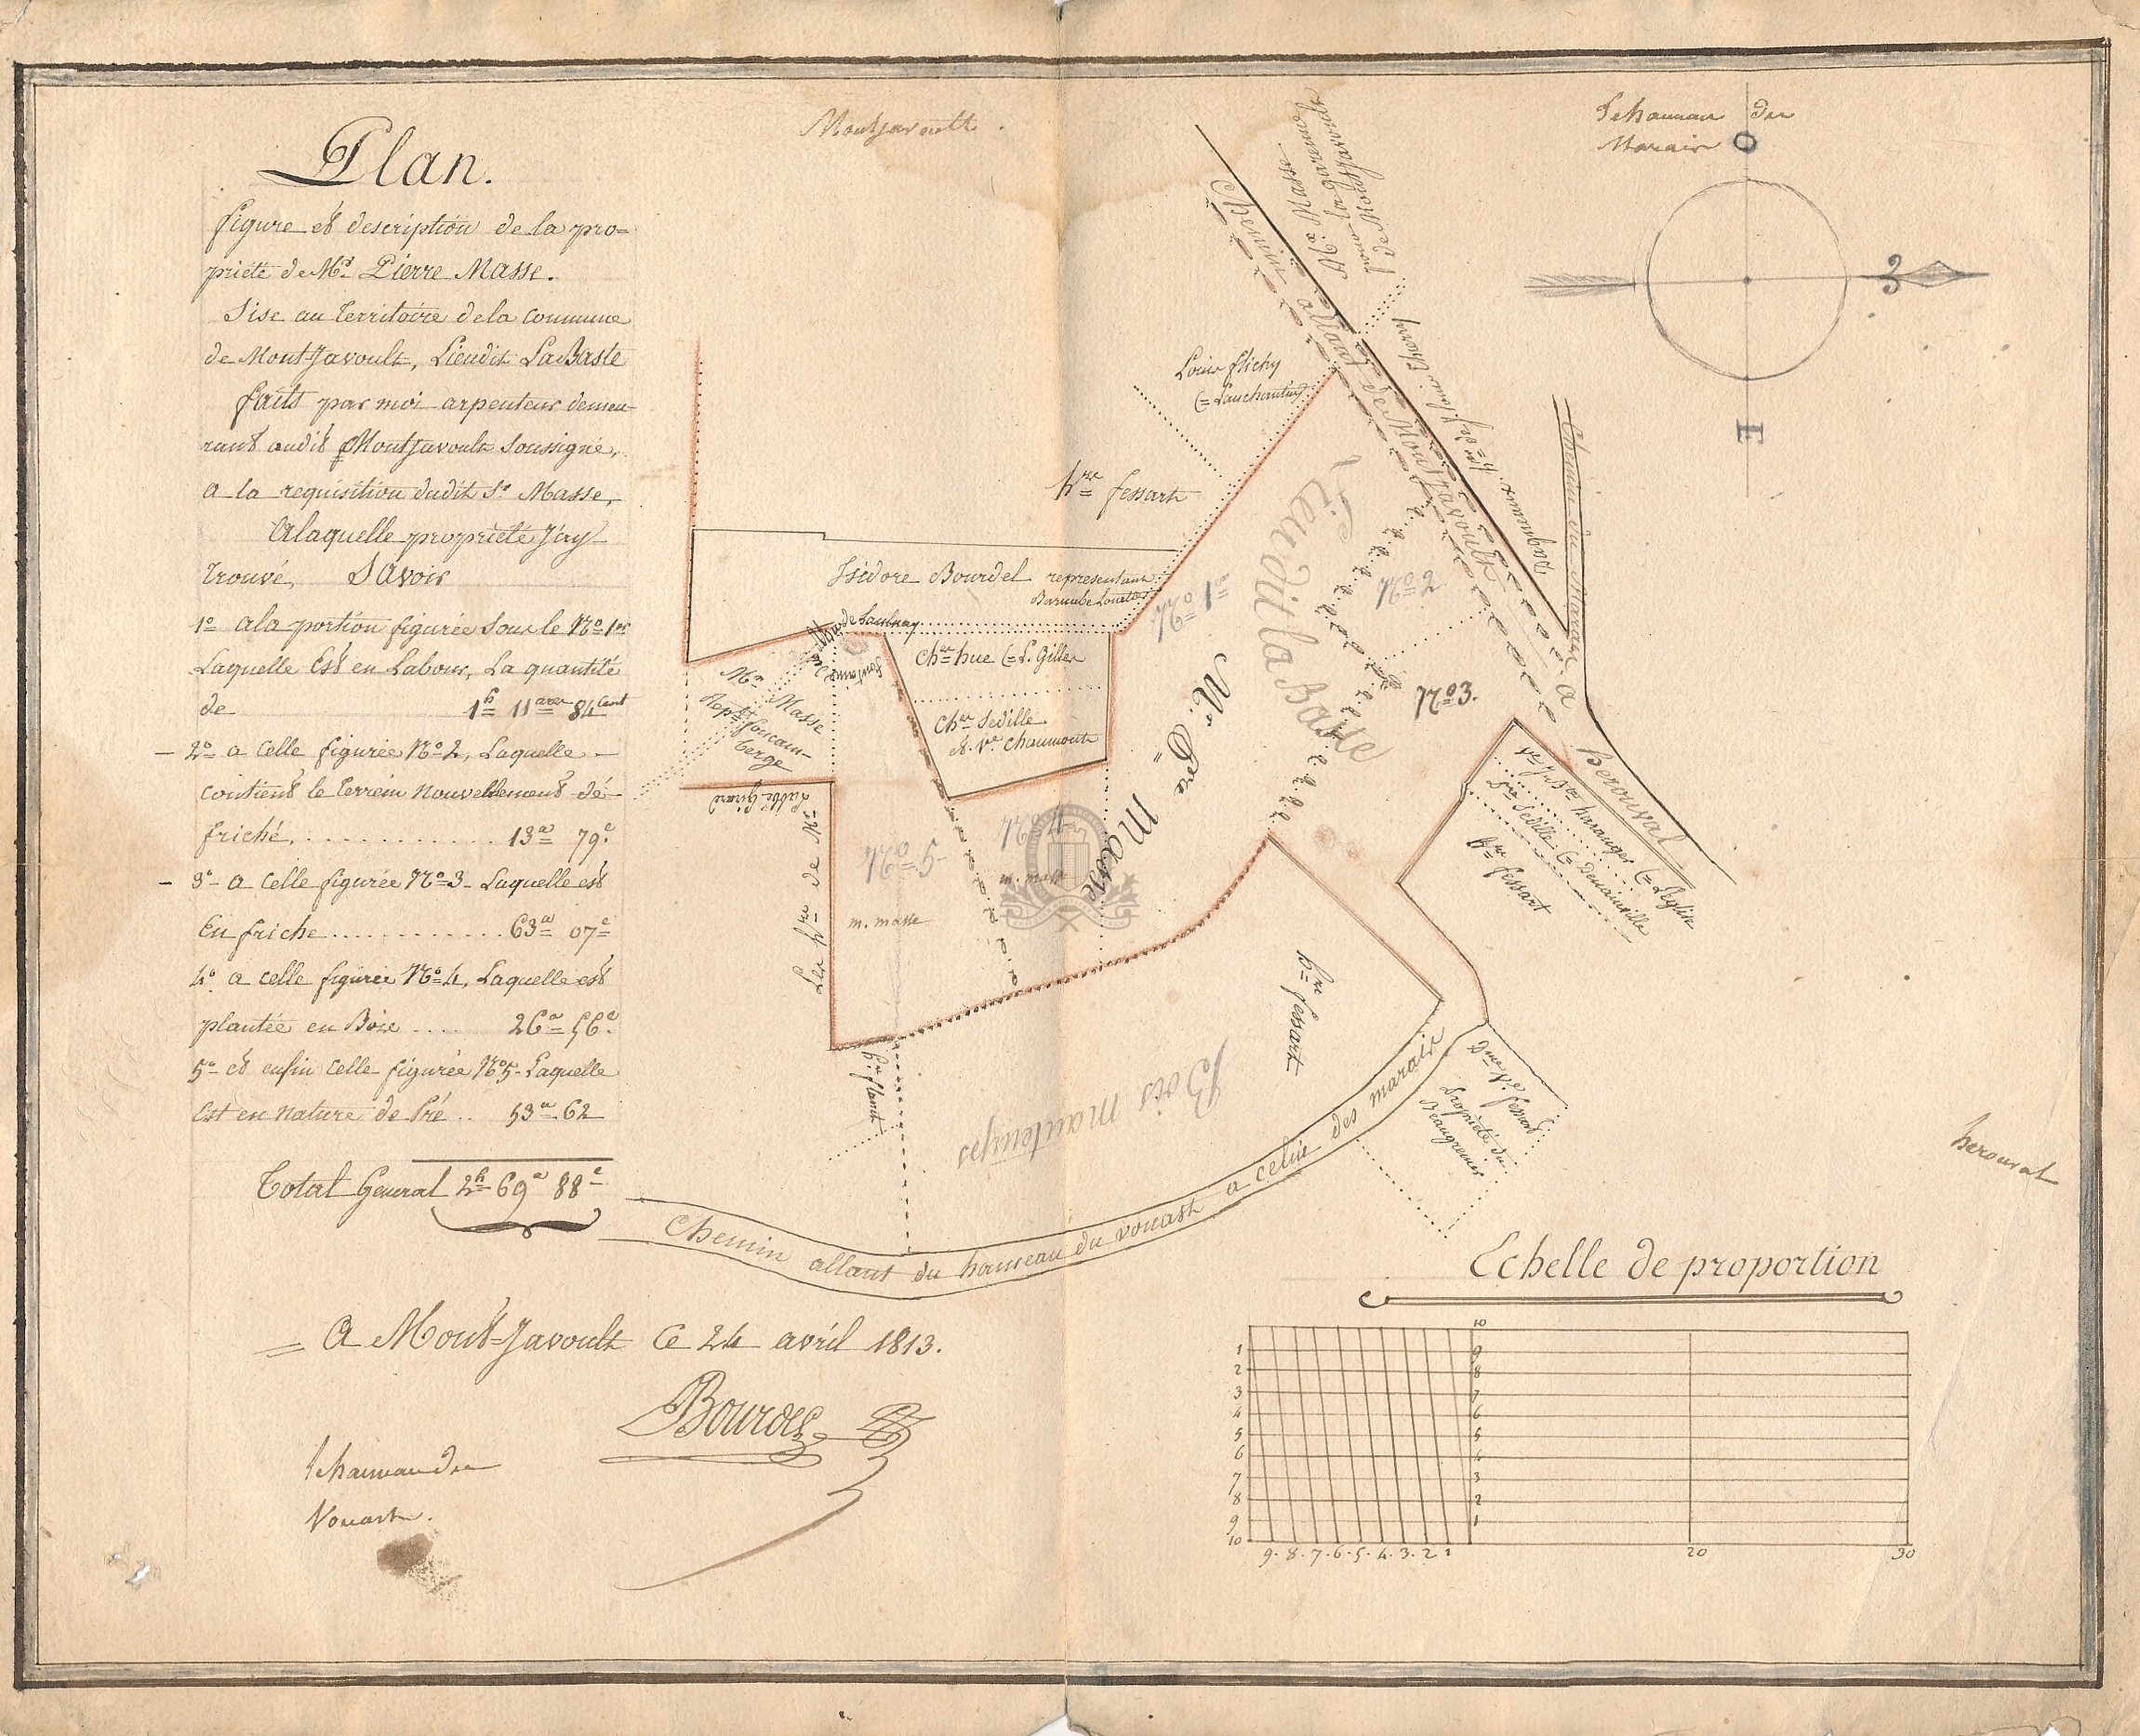 Plan.
figure et description de la pro=
priété de Mr. Pierre Masse.
Sise au Territoire dela commune
de Mont-Javoult, Lieudit La Basse
faits par moi arpenteur demeu-
rant audit Montjavoult soussigné,
a la requisition dudit Sr. Masse,
Alaquelle propriété J'ay
trouvé, Savoir
1o ala portion figurée sous le No 1er
Laquelle Est en Labour, La quantité
de 1h 11ares 84cent
2o a celle figurée No 2, Laquelle
contient le terrein nouvellement dé-
friché, . . . . . . . . . . . . 13a 79c
3o a celle figurée No 3 Laquelle est
En friche . . . . . . . . . . . . 63a 07c
4o a celle figurée No 4, Laquelle est
plantée en Bois . . . . 26a 56c
5o et enfin celle figurée No 5 Laquelle
Est en nature de Pré . . 53a 62
Total General 2h 69a 88c
A Mont-Javoult Ce 24 avril 1813.
Bourdel
le hameau du
Vouast.
Montjavoult.
le hameau des
Marais
O
E
Chemin allant de Montjavoult a herouval
Mr. Masse
pour la garenne
de Montjavoult
Louis flichy
hers fessart
Isidore Bourdel representant
Barnabé
de Saulnay
fontaine
Cher hue L. Gille
Cher Sedille
et Ve chaumont
Mr Masse
Rept
L'abbé Girard
Les hers de Mr
No 1er
Mr. Pre Masse
Lieu dit la Basse
No 2
No 3.
No 4
m. masse
No 5
m. masse
Chemin du Marais
Sedille
hers fessart
hers fessart
Bois
Dme Ve fessart
Propriété du
Chemin allant du hameau du vouast a celui des marais
herouval
Echelle de proportion
10
1 9
2 8
3 7
4 6
5 5
6 4
7 3
8 2
9 1
10
9. 8. 7. 6. 5. 4. 3. 2. 1 20 30